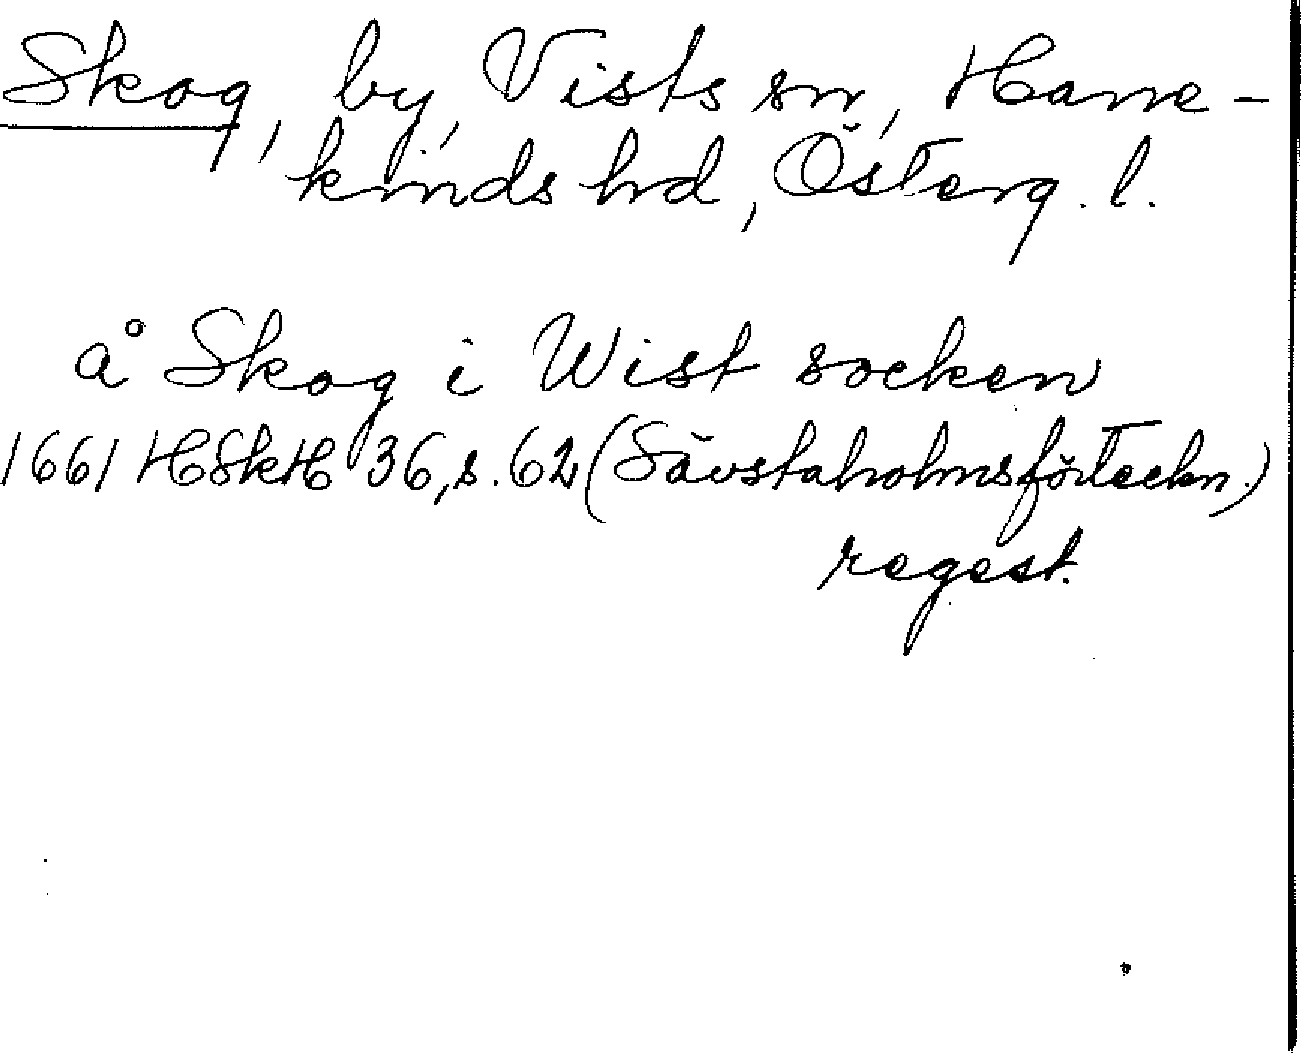 Skog, by, Vists sn, Hane-
kinds hd, Österg. l.
å Skog i Wist socken
1661 HSkH 36, s. 62 (Sävstaholmsförteckn.)
regest.